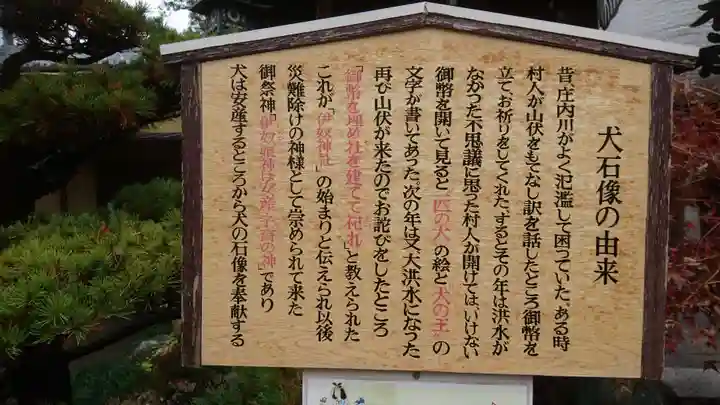 犬石像の由来
昔、庄内川がよく氾濫して困っていた、ある時
村人が山伏をもてなし訳を話したところ御幣を
立て、お祈りをしてくれた、するとその年は洪水が
なかった不思議に思った村人が開けては、いけない
御幣を開いて見ると「一匹の犬」の絵と「犬の王」の
文字が書いてあった、次の年は又大洪水になった
再び山伏が来たのでお詫びをしたところ
「御幣を埋め社を建てて祀れ」と教えられた
これが「伊奴神社」の始まりと伝えられ以後
災難除けの神様として崇められて来た
御祭神「伊奴姫神は安産子育の神」であり
犬は安産するところから犬の石像を奉献する